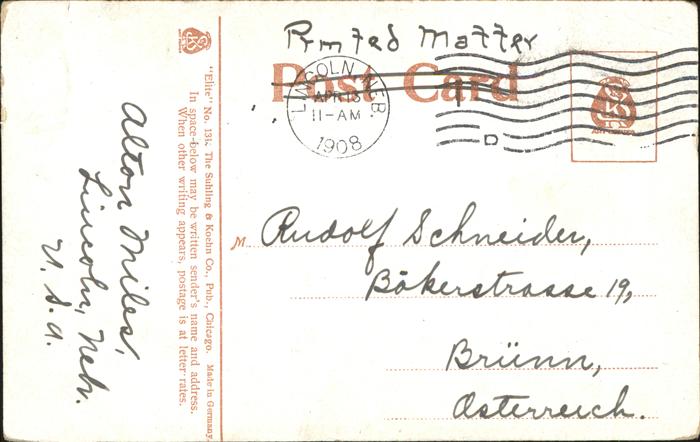 Printed Matter
Post Card
LINCOLN, NEB.
APR 13
11-AM
1908
D
"Elite" No. 131. The Suhling & Koehn Co., Pub., Chicago. Made in Germany.
In space below may be written sender's name and address.
When other writing appears, postage is at letter rates.
Alton Miles,
Lincoln, Neb.
U. S. A.
M Rudolf Schneider,
Bäkerstrasse 19,
Brünn,
Österreich.